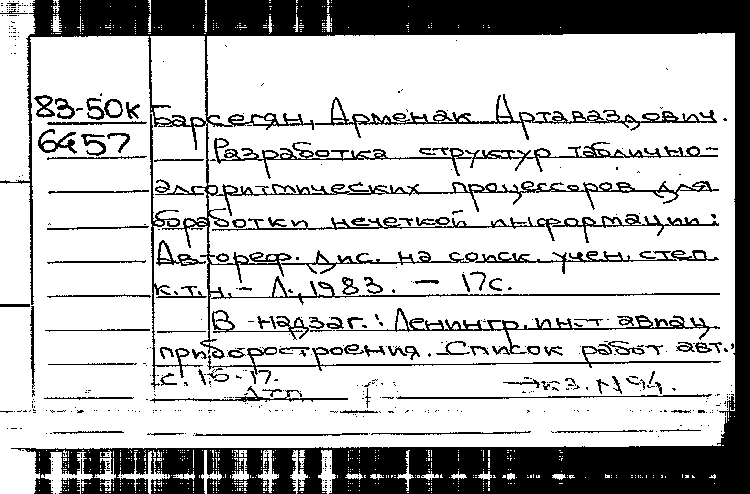 83-50к Барсегян, Арменак Артаваздович.
6457
Разработка структур таблично-
алгоритмических процессоров для
боработки нечеткой информации:
Автореф. дис. на соиск. учен. степ.
к.т.н. - Л., 1983. - 17с.
В надзаг.: Ленингр. ин-т авиац.
приборостроения. Список работ авт.:
с. 16-17.
Экз. N94.